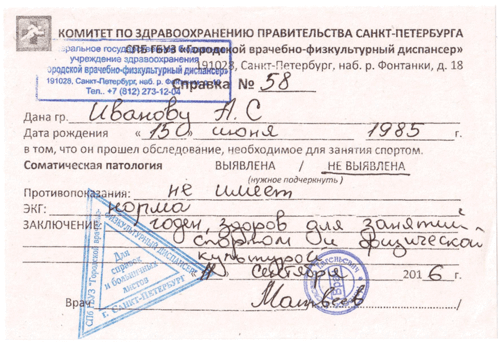 КОМИТЕТ ПО ЗДРАВООХРАНЕНИЮ ПРАВИТЕЛЬСТВА САНКТ-ПЕТЕРБУРГА
СПБ ГБУЗ «Городской врачебно-физкультурный диспансер»
191028, Санкт-Петербург, наб. р. Фонтанки, д. 18
учреждение здравоохранения
ородской врачебно-физкультурный диспансер»
191028, Санкт-Петербург, наб. р. Фонтанки, д. 18
Тел.: +7 (812) 273-12-04
Справка № 58
Дана гр. Иванову А.С
Дата рождения « 15 » июня 1985 г.
в том, что он прошел обследование, необходимое для занятия спортом.
Соматическая патология ВЫЯВЛЕНА / НЕ ВЫЯВЛЕНА
(нужное подчеркнуть)
Противопоказания: не имеет
ЭКГ: норма
ЗАКЛЮЧЕНИЕ: годен, здоров для занятий
спортом и физической
культурой
сентября 2016 г.
Врач Матвеев /
СПБ ГБУЗ "Городской
физкультурный диспансер"
г. САНКТ-ПЕТЕРБУРГ
Для
справок
и больничных
листов